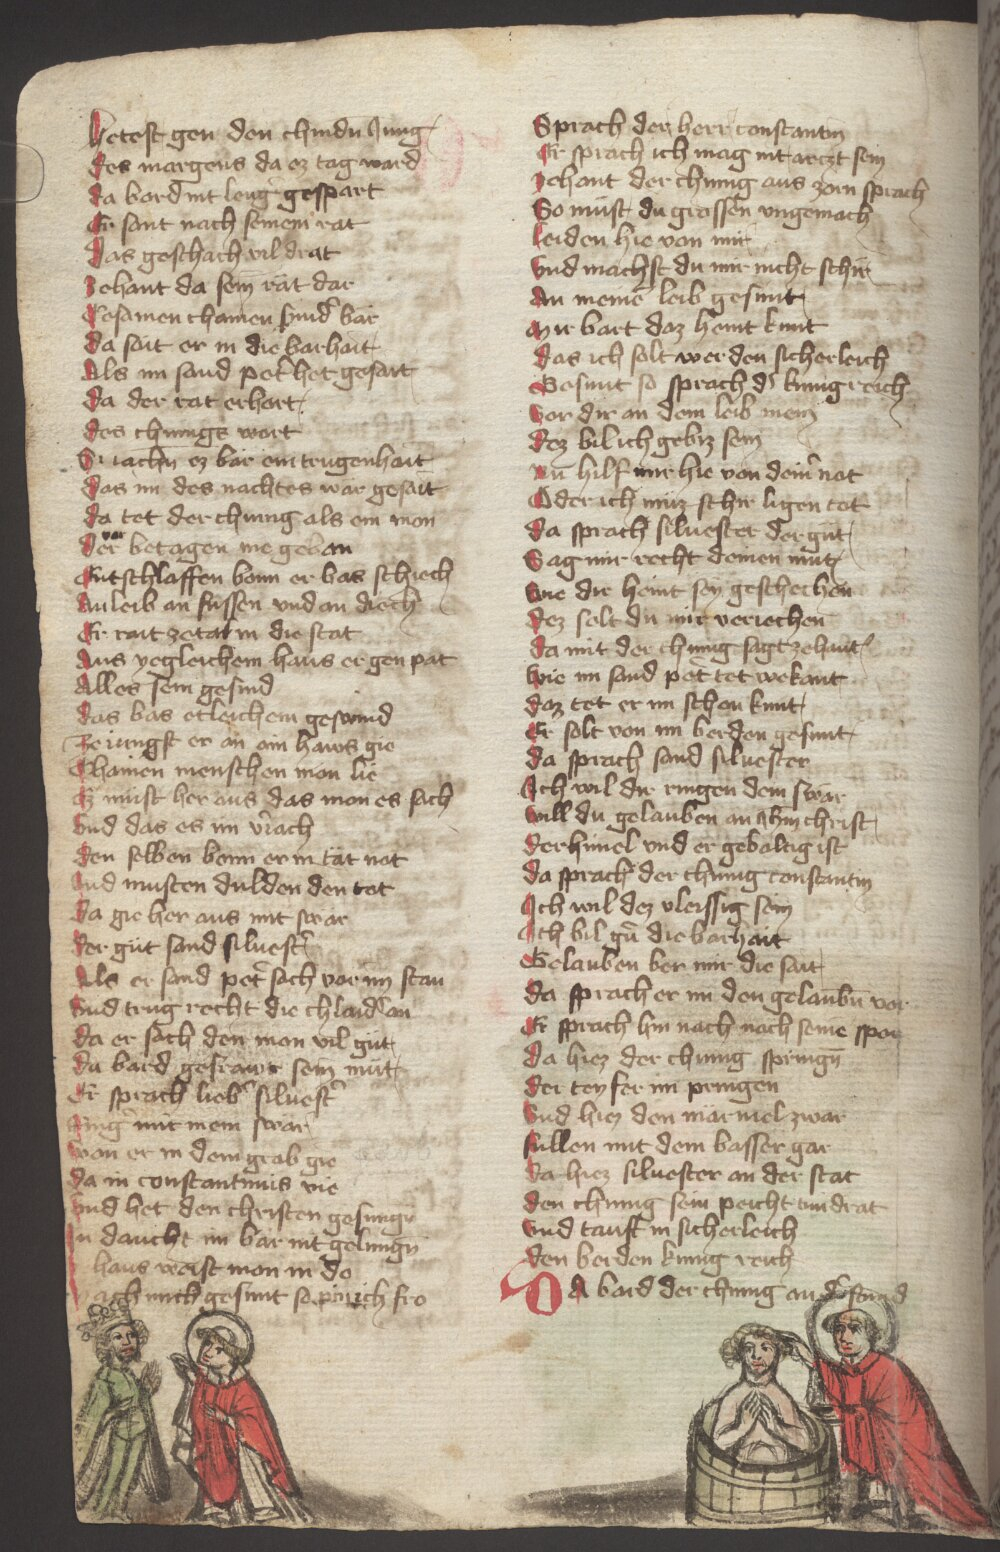 Hetest gen den chindn Jung
Des margens da ez tag ward
Da bard nit leng gespart
Er sant nach seinem rat
Das geschach vil drat
Zehant da sein rät dar
Gesamen chamen sunder bar
Da sait er in die barhait
Als im sand peter het gesait
Da der rat erhort
Des chunigs wort
Si iachn ez bär ein trugenhait
Das im des nachtes war gesait
Da tet der chunig als ein mon
Der vor betagen me geban
Entschlaffen bonn er bas schiech
An leib an füssen vnd an diech
Er rait zetal in die stat
Aus yegleichem haus er gen pat
Alles sein gesind
Das bas etleichem geswind
Ze iungst er an ain haws gie
Chainen menschen mon lie
Er müst her aus das mon es sach
Vnd das es im veriach
Den selben bonn er in tät not
Vnd musten dulden den tot
Da gie her aus mit swär
Der güt sand siluester
Als er sand peter sach vor im stan
Vnd trug recht die chlaider an
Da er sach den mon vil güt
Da bard gefrawt sein müt
Er sprach lieber siluester
Ring mir mein swär
Won er in dem grab gie
Da in constantinus vie
Vnd het den christen gesungen
In daucht im bär nit gelungen
haus weist mon in do
mach mich gesunt so pin ich fro
Sprach der herr constantin
Er sprach ich mag nit arczt sein
Zehant der chunig aus zorn sprach
So müst du grossen vngemach
Leiden hie von mir
Vnd machst du mir nicht schir
An meine leib gesunt
Mir bart daz heint kunt
Das ich solt werden sicherleich
Gesunt so sprach der kunig reich
Vor dir an dem leib mein
Dez bil ich gebiz sein
Nu hilf mir hie von deiner not
Oder ich müz schir ligen tot
Da sprach siluester der güt
Sag mir recht deinen müt
Wie dir heint sey geschechen
Dez solt du mir veriechen
Da mit der chunig sagt zehant
Wie im sand peter tet wekant
Daz tet er im schon kunt
Er solt von im berden gesunt
Da sprach sand siluester
Ich wil dir ringen dein swär
Will du gelauben an Jhm christ
Der himel vnd er gebaltig ist
Da sprach der chunig constantin
Ich wil dez vleissig sein
Ich bil gern die barhait
Gelauben ber mir die sait
Da sprach er im den gelaubn vor
Er sprach hin nach nach seine spor
Da hiez der chunig springen
Der teyfer im pringen
Vnd hiez den märmel zwar
füllen mit dem basser gar
Da hiez siluester an der stat
Den chunig sein peicht tun drat
Vnd tauft in sicherleich
Den berden kunig reich
DA bard der chunig an der stund